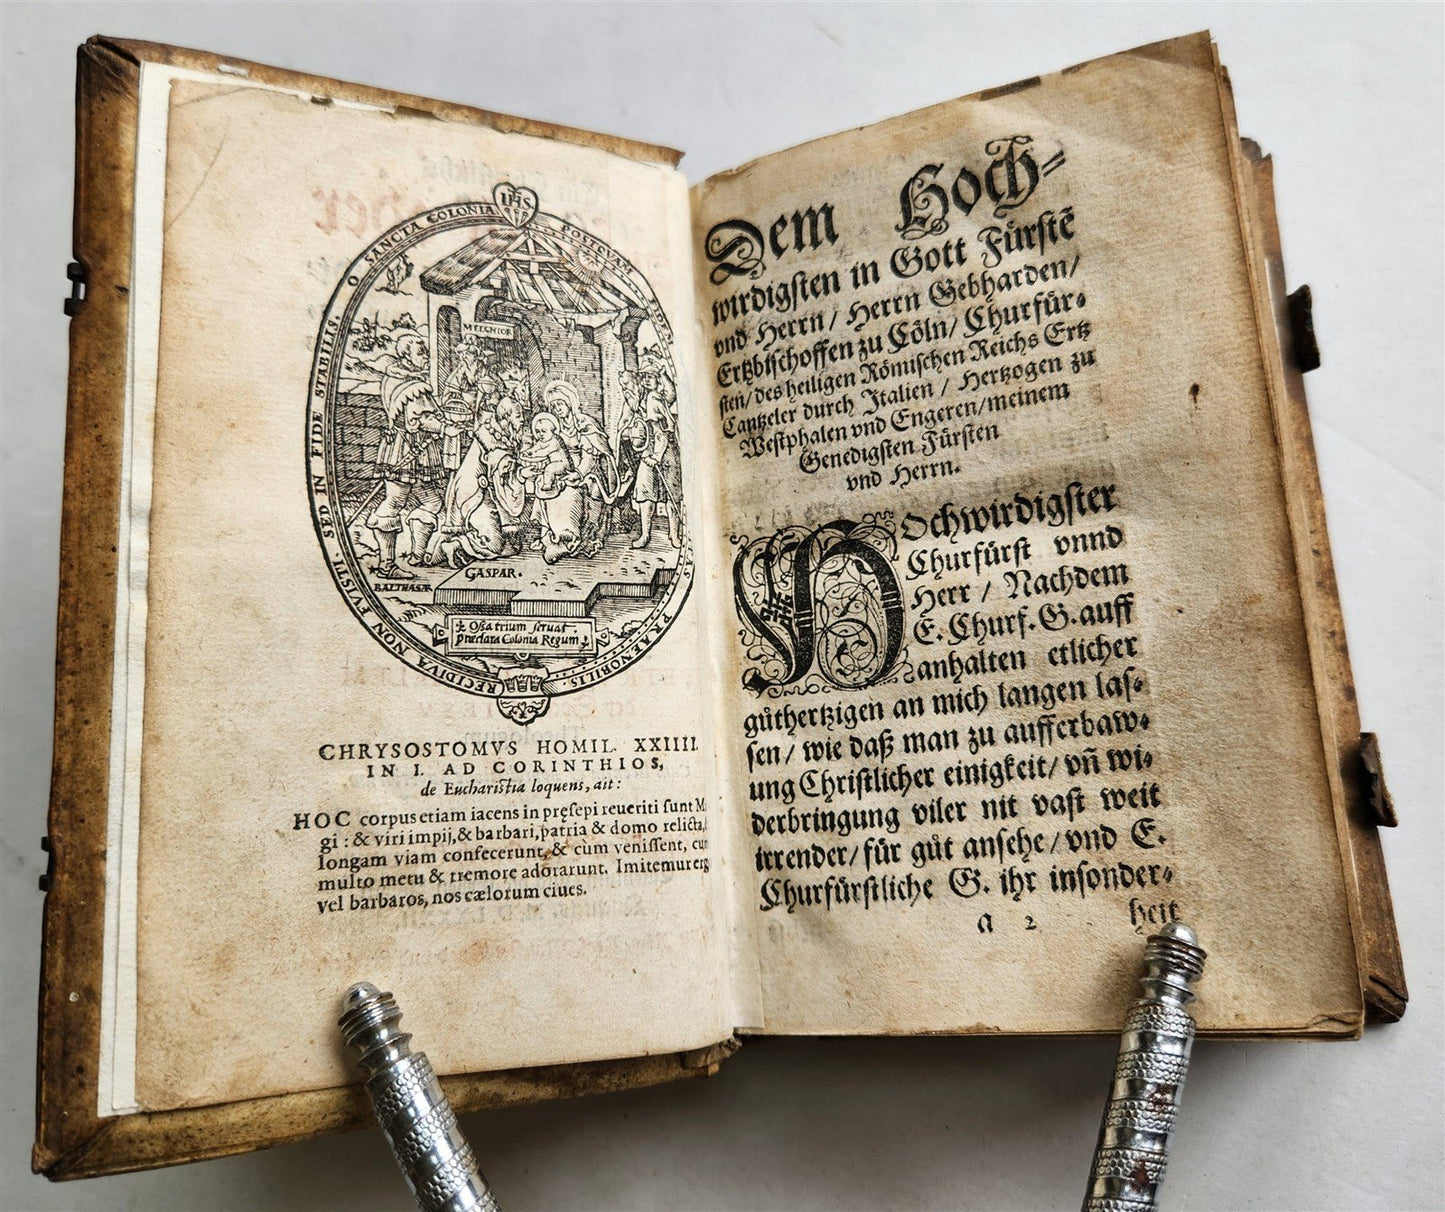 IHS
O SANCTA COLONIA POSTQVAM FIDEM
PRAENOBILIS. RECIDIVA NON FVISTI. SED IN FIDE STABILIS.
MELCHIOR
GASPAR.
BALTHASAR
Ossa trium seruat
præclara Colonia Regum
CHRYSOSTOMVS HOMIL. XXIIII.
IN I. AD CORINTHIOS,
de Eucharistia loquens, ait:
HOC corpus etiam iacens in pręsepi reueriti sunt
gi: & viri impij, & barbari, patria & domo relicta,
longam viam confecerunt, & cùm venissent,
multo metu & tremore adorarunt. Imitemur
vel barbaros, nos cælorum ciues.
Dem Hoch-
wirdigsten in Gott Fürstẽ
vnd Herrn/ Herrn Gebharden/
Ertzbischoffen zu Cöln/ Churfür-
sten/ des heiligen Römischen Reichs Ertz
Cantzeler durch Italien/ Hertzogen zu
Westphalen vnd Engeren/ meinem
Genedigsten Fürsten
vnd Herrn.
HOchwirdigster
Churfürst vnnd
Herr/ Nachdem
E. Churf. G. auff
anhalten etlicher
gůthertzigen an mich langen las-
sen/ wie daß man zu aufferbaw-
ung Christlicher einigkeit/ vñ wi-
derbringung viler nit vast weit
irrender/ für gůt ansehe/ vnd E.
Churfürstliche G. ihr insonder-
A 2 heit